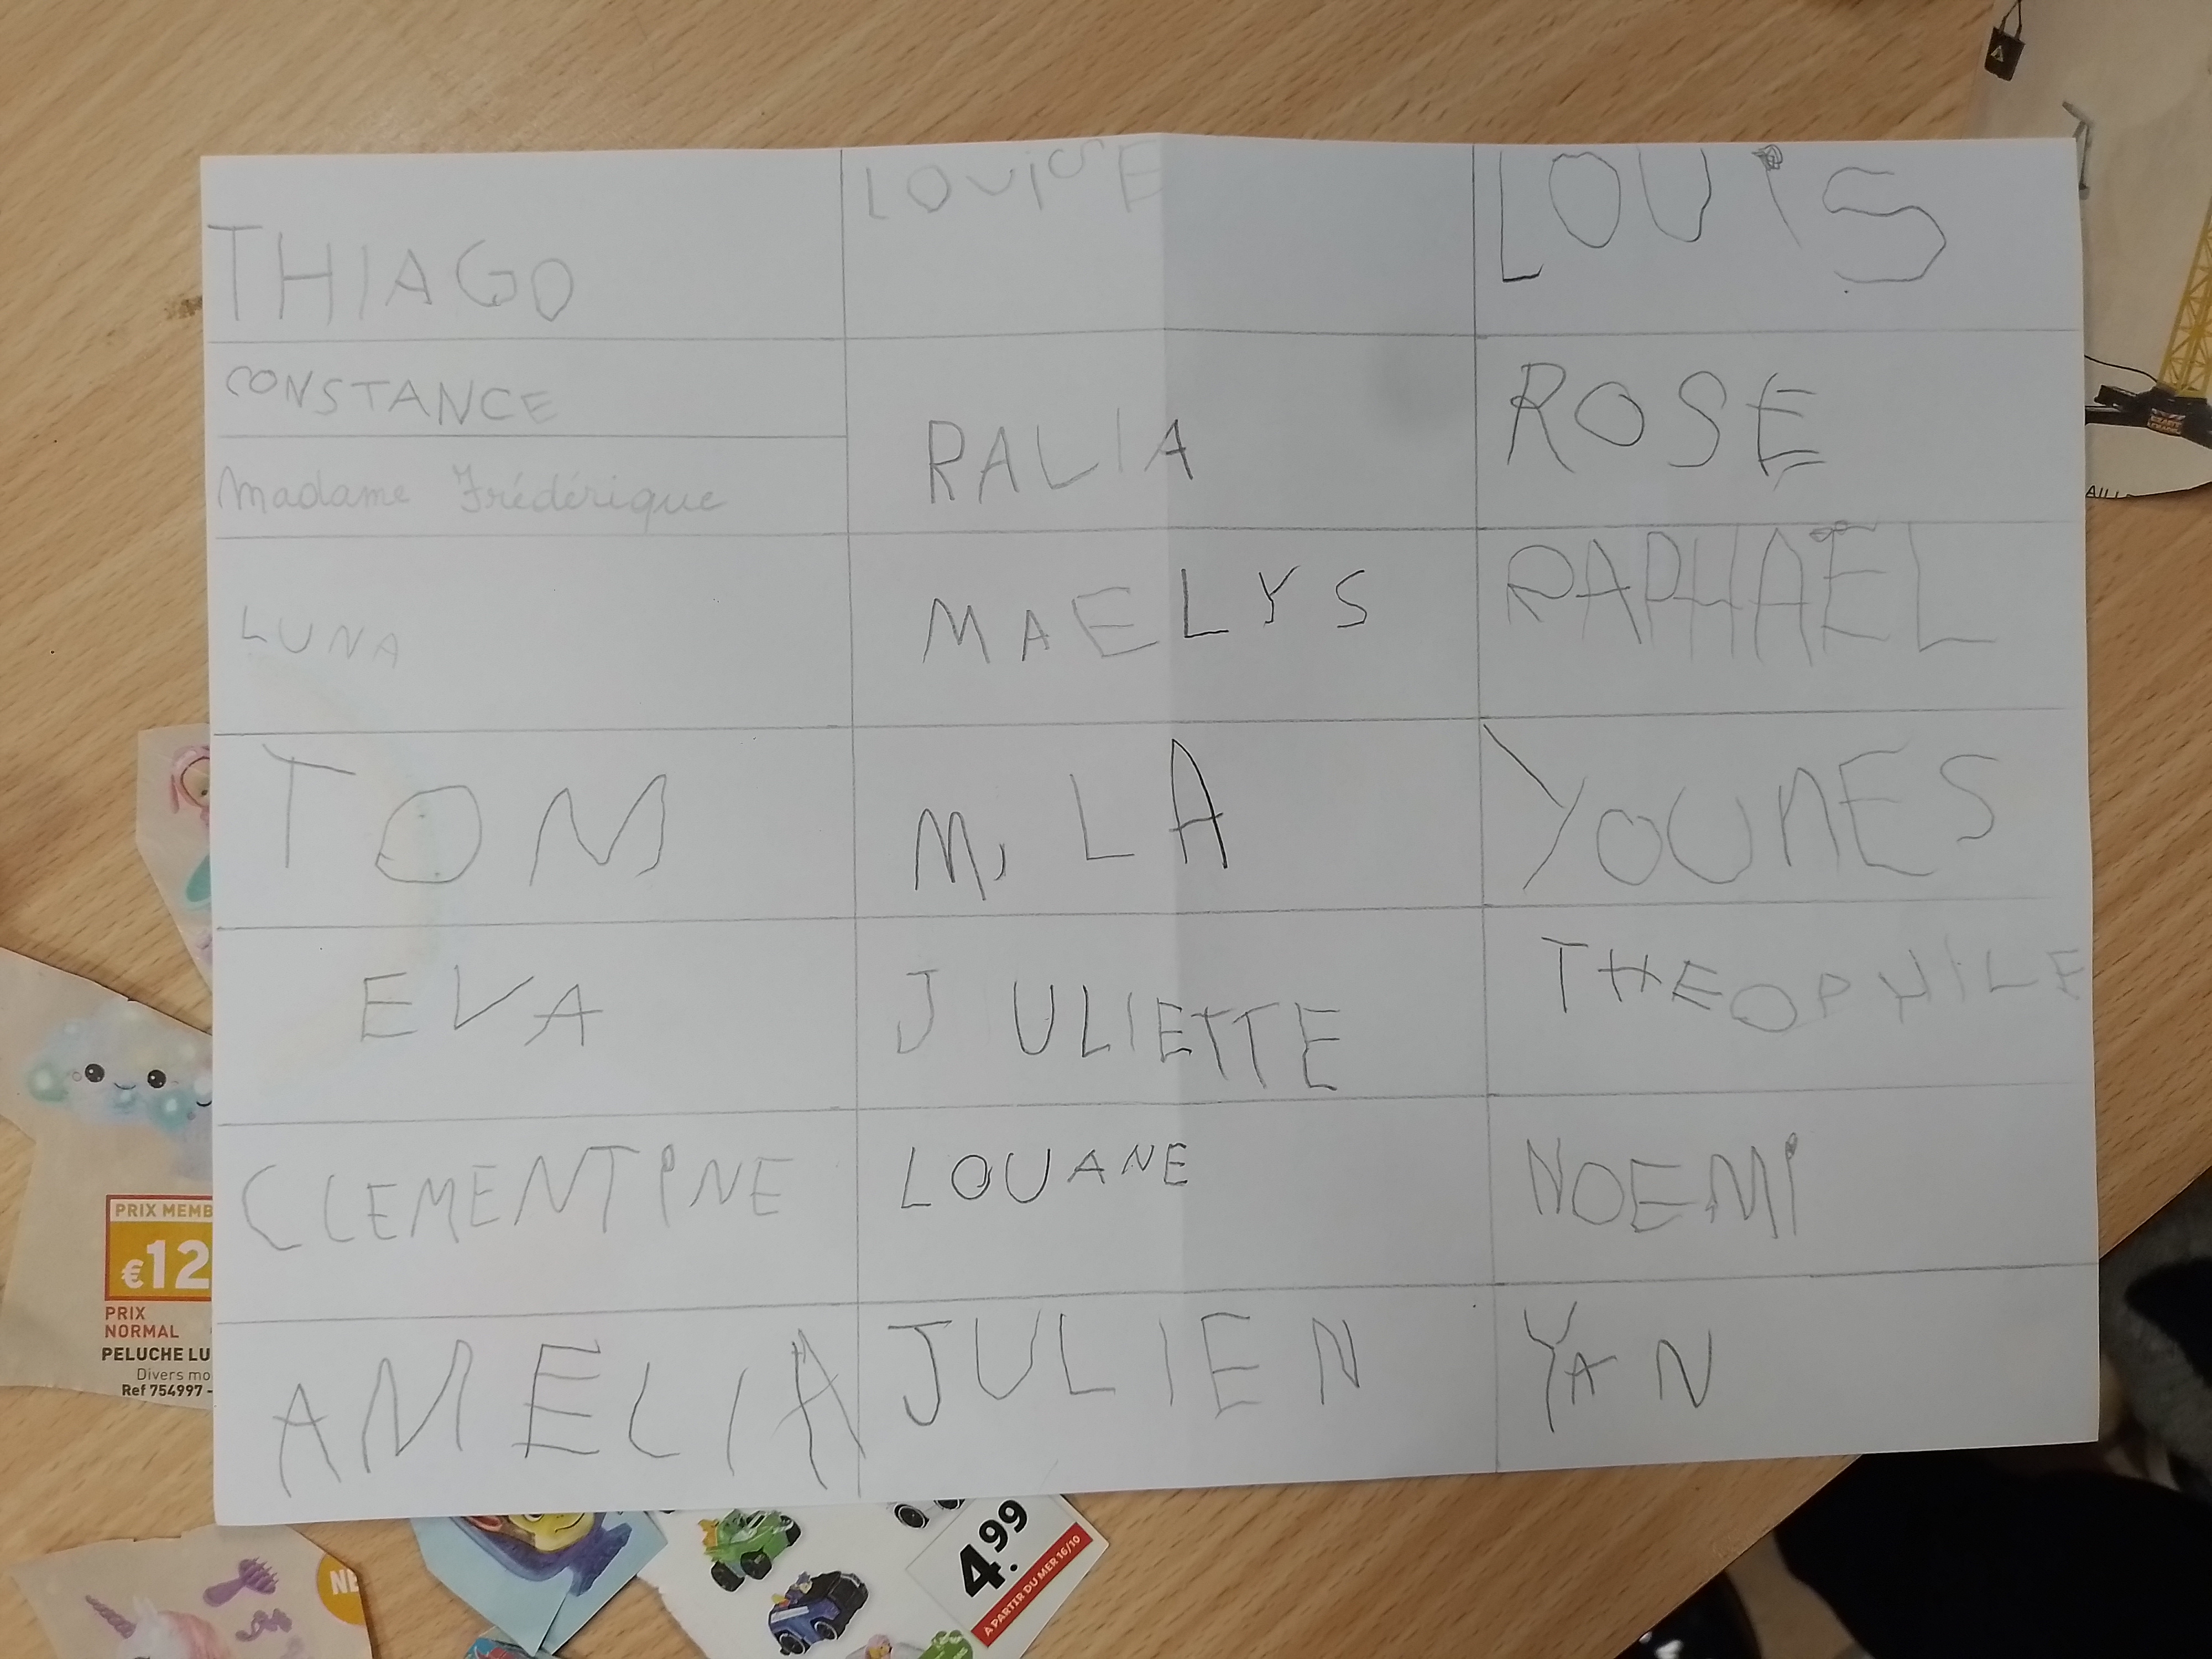 THIAGO
LOUISE
LOUiS
CONSTANCE
Madame Frédérique
RALIA
ROSE
LUNA
MAELYS
RAPHAËL
TOM
MiLA
YOUNES
EVA
JULIETTE
THEOPHILE
CLEMENTiNE
LOUANE
NOEMi
AMELIA
JULIEN
YAN
PRIX MEMB
€12
PRIX
NORMAL
PELUCHE LU
Divers mo
Ref 754997 -
4.99
A PARTIR DU MER 16/10